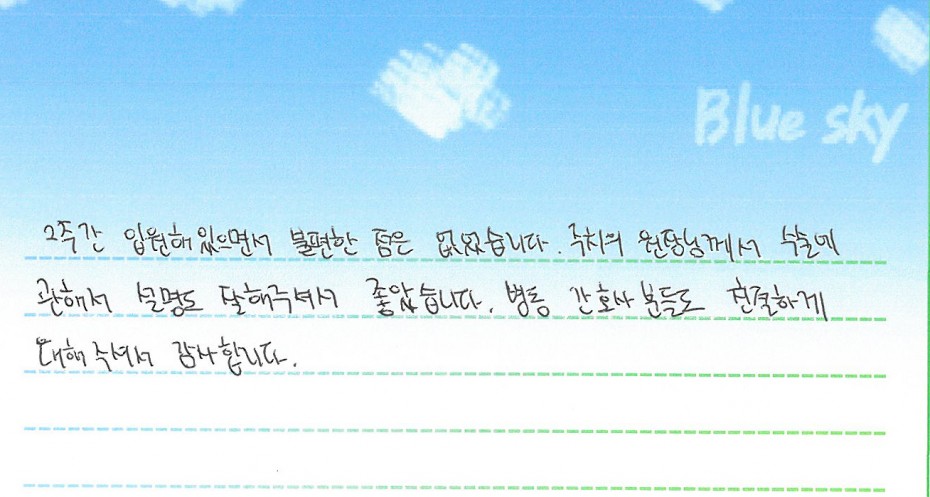 Blue sky
2주간 입원해있으면서 불편한 점은 없었습니다. 주치의 원장님께서 수술에
관해서 설명도 잘해주셔서 좋았습니다. 병동 간호사분들도 친절하게
대해주셔서 감사합니다.